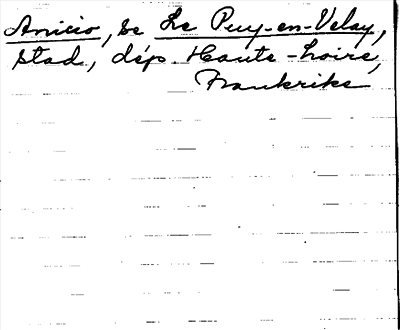 Anicio, se Le Puy-en-Velay,
stad, dép. Haute-Loire,
Frankrike